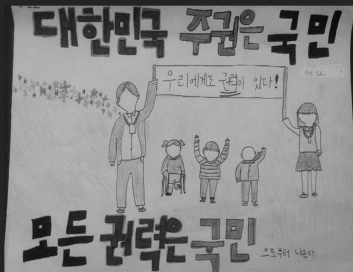 대한민국 주권은 국민
우리에게도 권력이 있다!
모든 권력은 국민
으로부터 나온다.